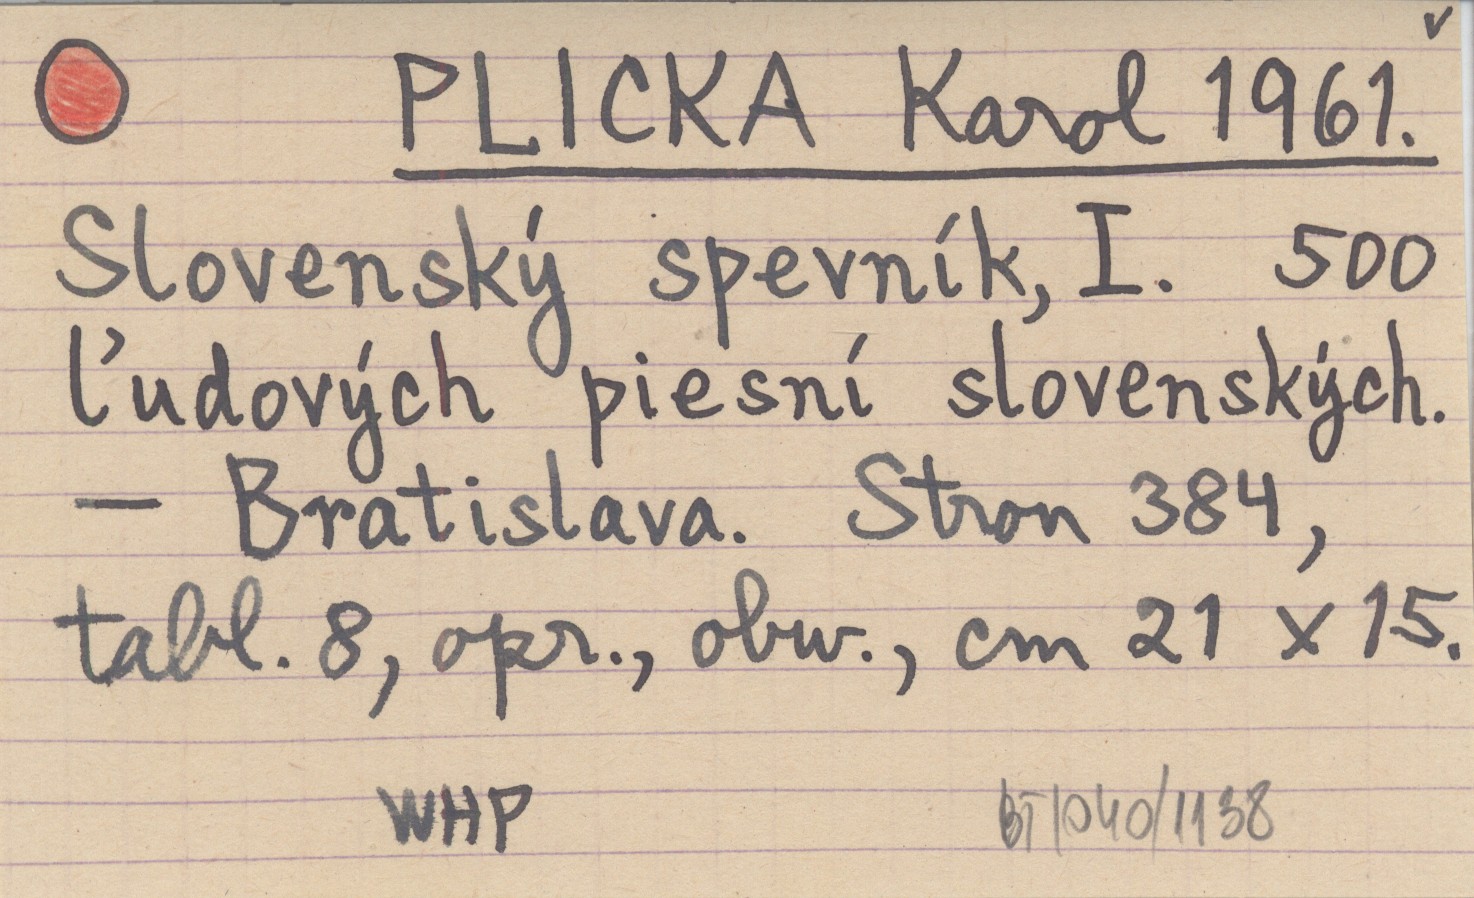 v
PLICKA Karol 1961.
Slovenský spevník, I. 500
ľudových piesní slovenských.
— Bratislava. Stron 384,
tabl. 8, opr., obw., cm 21 x 15.
WHP BT/040/1138